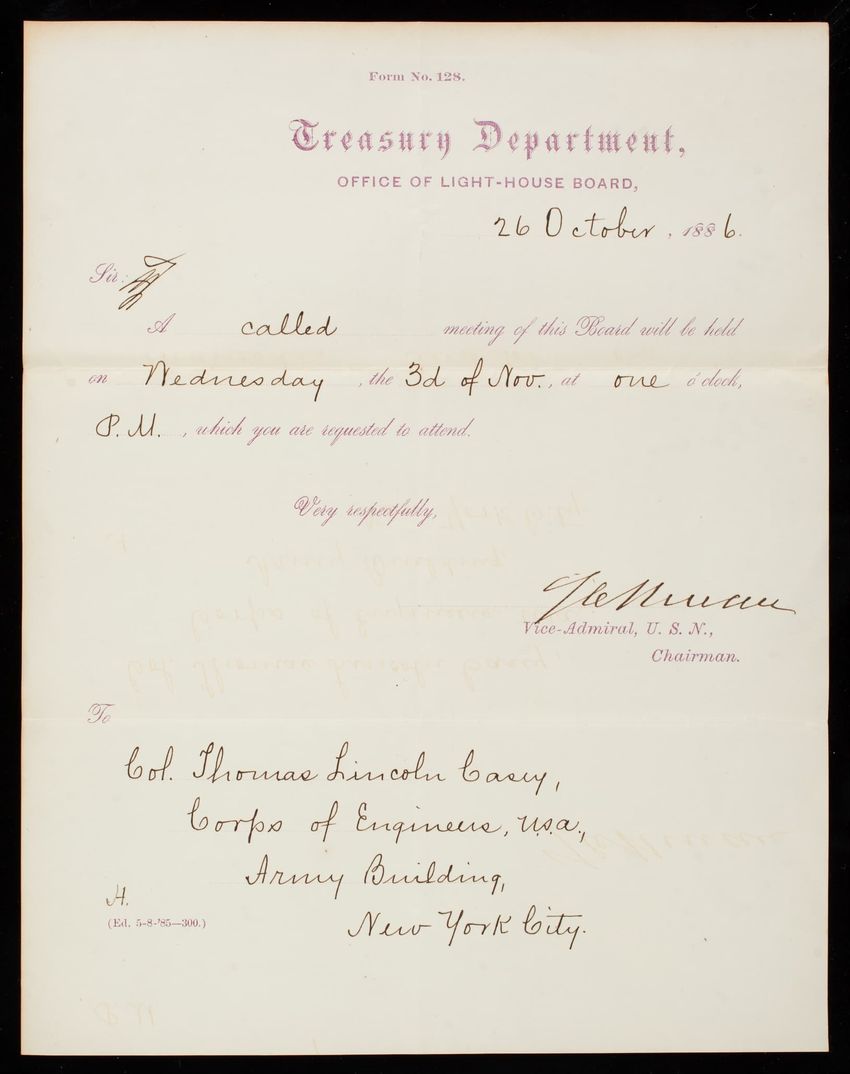 Form No. 128.
Treasury Department,
OFFICE OF LIGHT-HOUSE BOARD,
26 October, 1886.
Sir:
A called meeting of this Board will be held
on Wednesday, the 3d of Nov., at one o'clock,
P.M., which you are requested to attend.
Very respectfully,
Vice-Admiral, U. S. N.,
Chairman.
To
Col. Thomas Lincoln Casey,
Corps of Engineers, U.S.A.,
Army Building,
New York City.
H.
(Ed. 5-8-'85—300.)